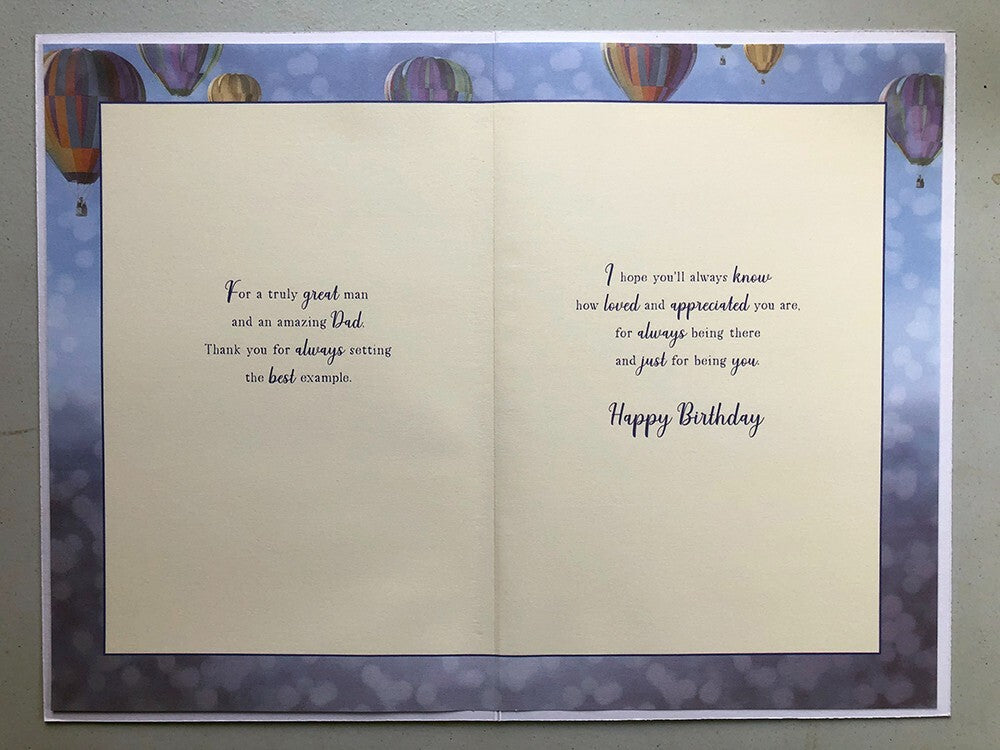 For a truly great man
and an amazing Dad.
Thank you for always setting
the best example.
I hope you'll always know
how loved and appreciated you are,
for always being there
and just for being you.
Happy Birthday